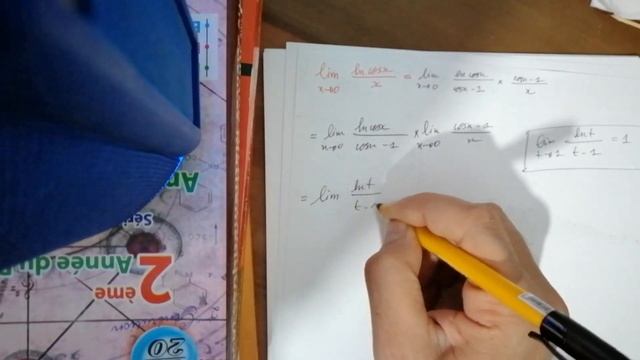 lim x→0 ln cosx / x = lim x→0 ln cosx / cosx - 1 × cosx - 1 / x
= lim x→0 ln cosx / cosx - 1 × lim x→0 cosx - 1 / x
lim t→1 ln t / t - 1 = 1
= lim ln t / t -
2ème
Année du
20